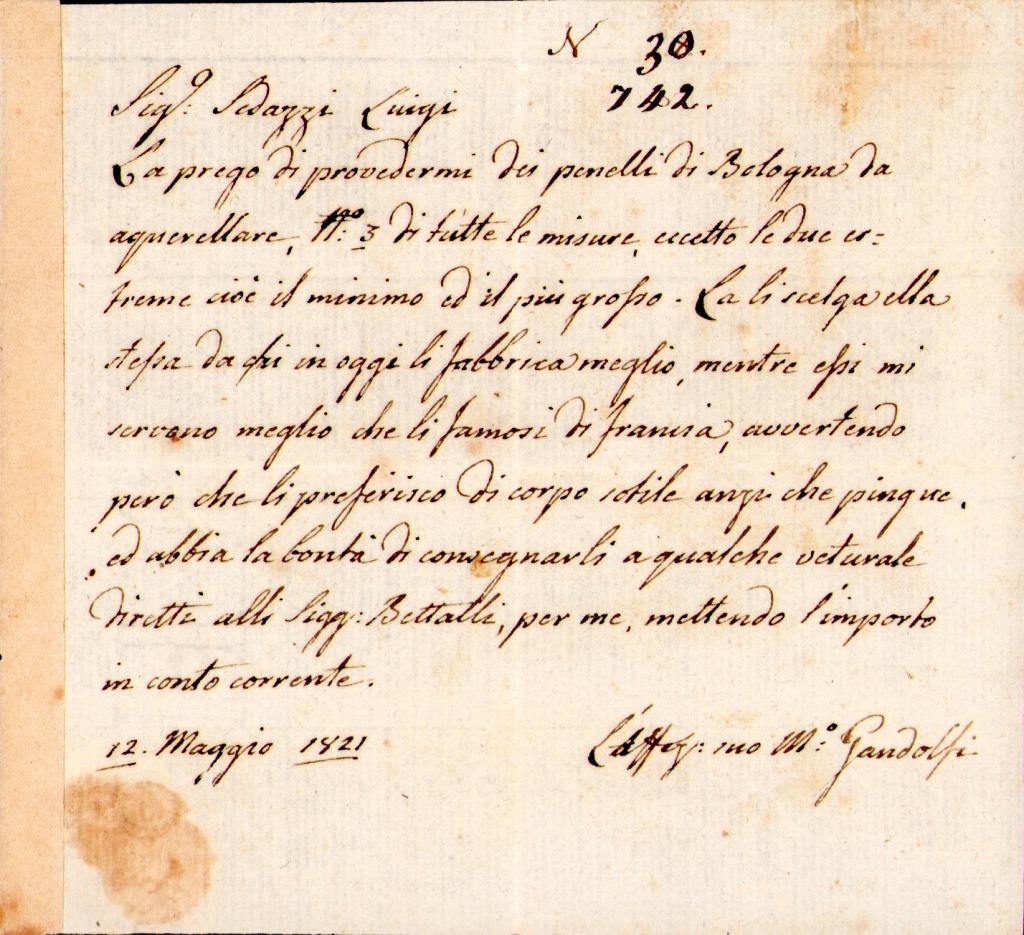 N 30.
742.
Sigr: Sedazzi Luigi
La prego di provedermi dei penelli di Bologna da
aquerellare, No: 3 di tutte le misure, eccetto le due es=
treme cioè il minimo ed il più grosso. La li scelga ella
stessa da chi in oggi li fabbrica meglio, mentre essi mi
servono meglio che li famosi di francia, avvertendo
però che li preferisco di corpo sotile anzi che pingue.
ed abbia la bontà di consegnarli a qualche veturale
diretti alli Sigg: Bettalli, per me, mettendo l'importo
in conto corrente.
12. Maggio 1821
suo Mo: Gandolfi